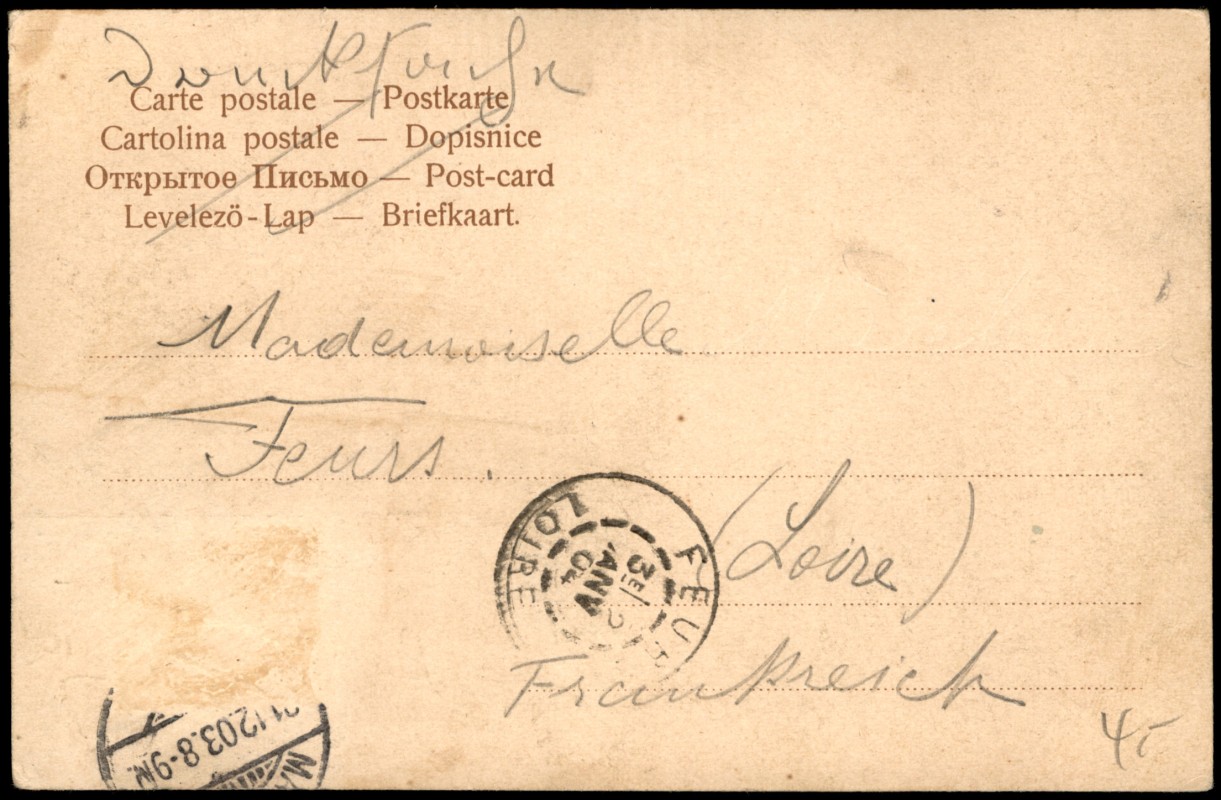 Drucksache
Carte postale — Postkarte
Cartolina postale — Dopisnice
Открытое Письмо — Post-card
Levelező-Lap — Briefkaart.
Mademoiselle
Feurs.
(Loire)
Frankreich
FEURS
LOIRE
3E
JANV
04
12.03.8-9N.
4-